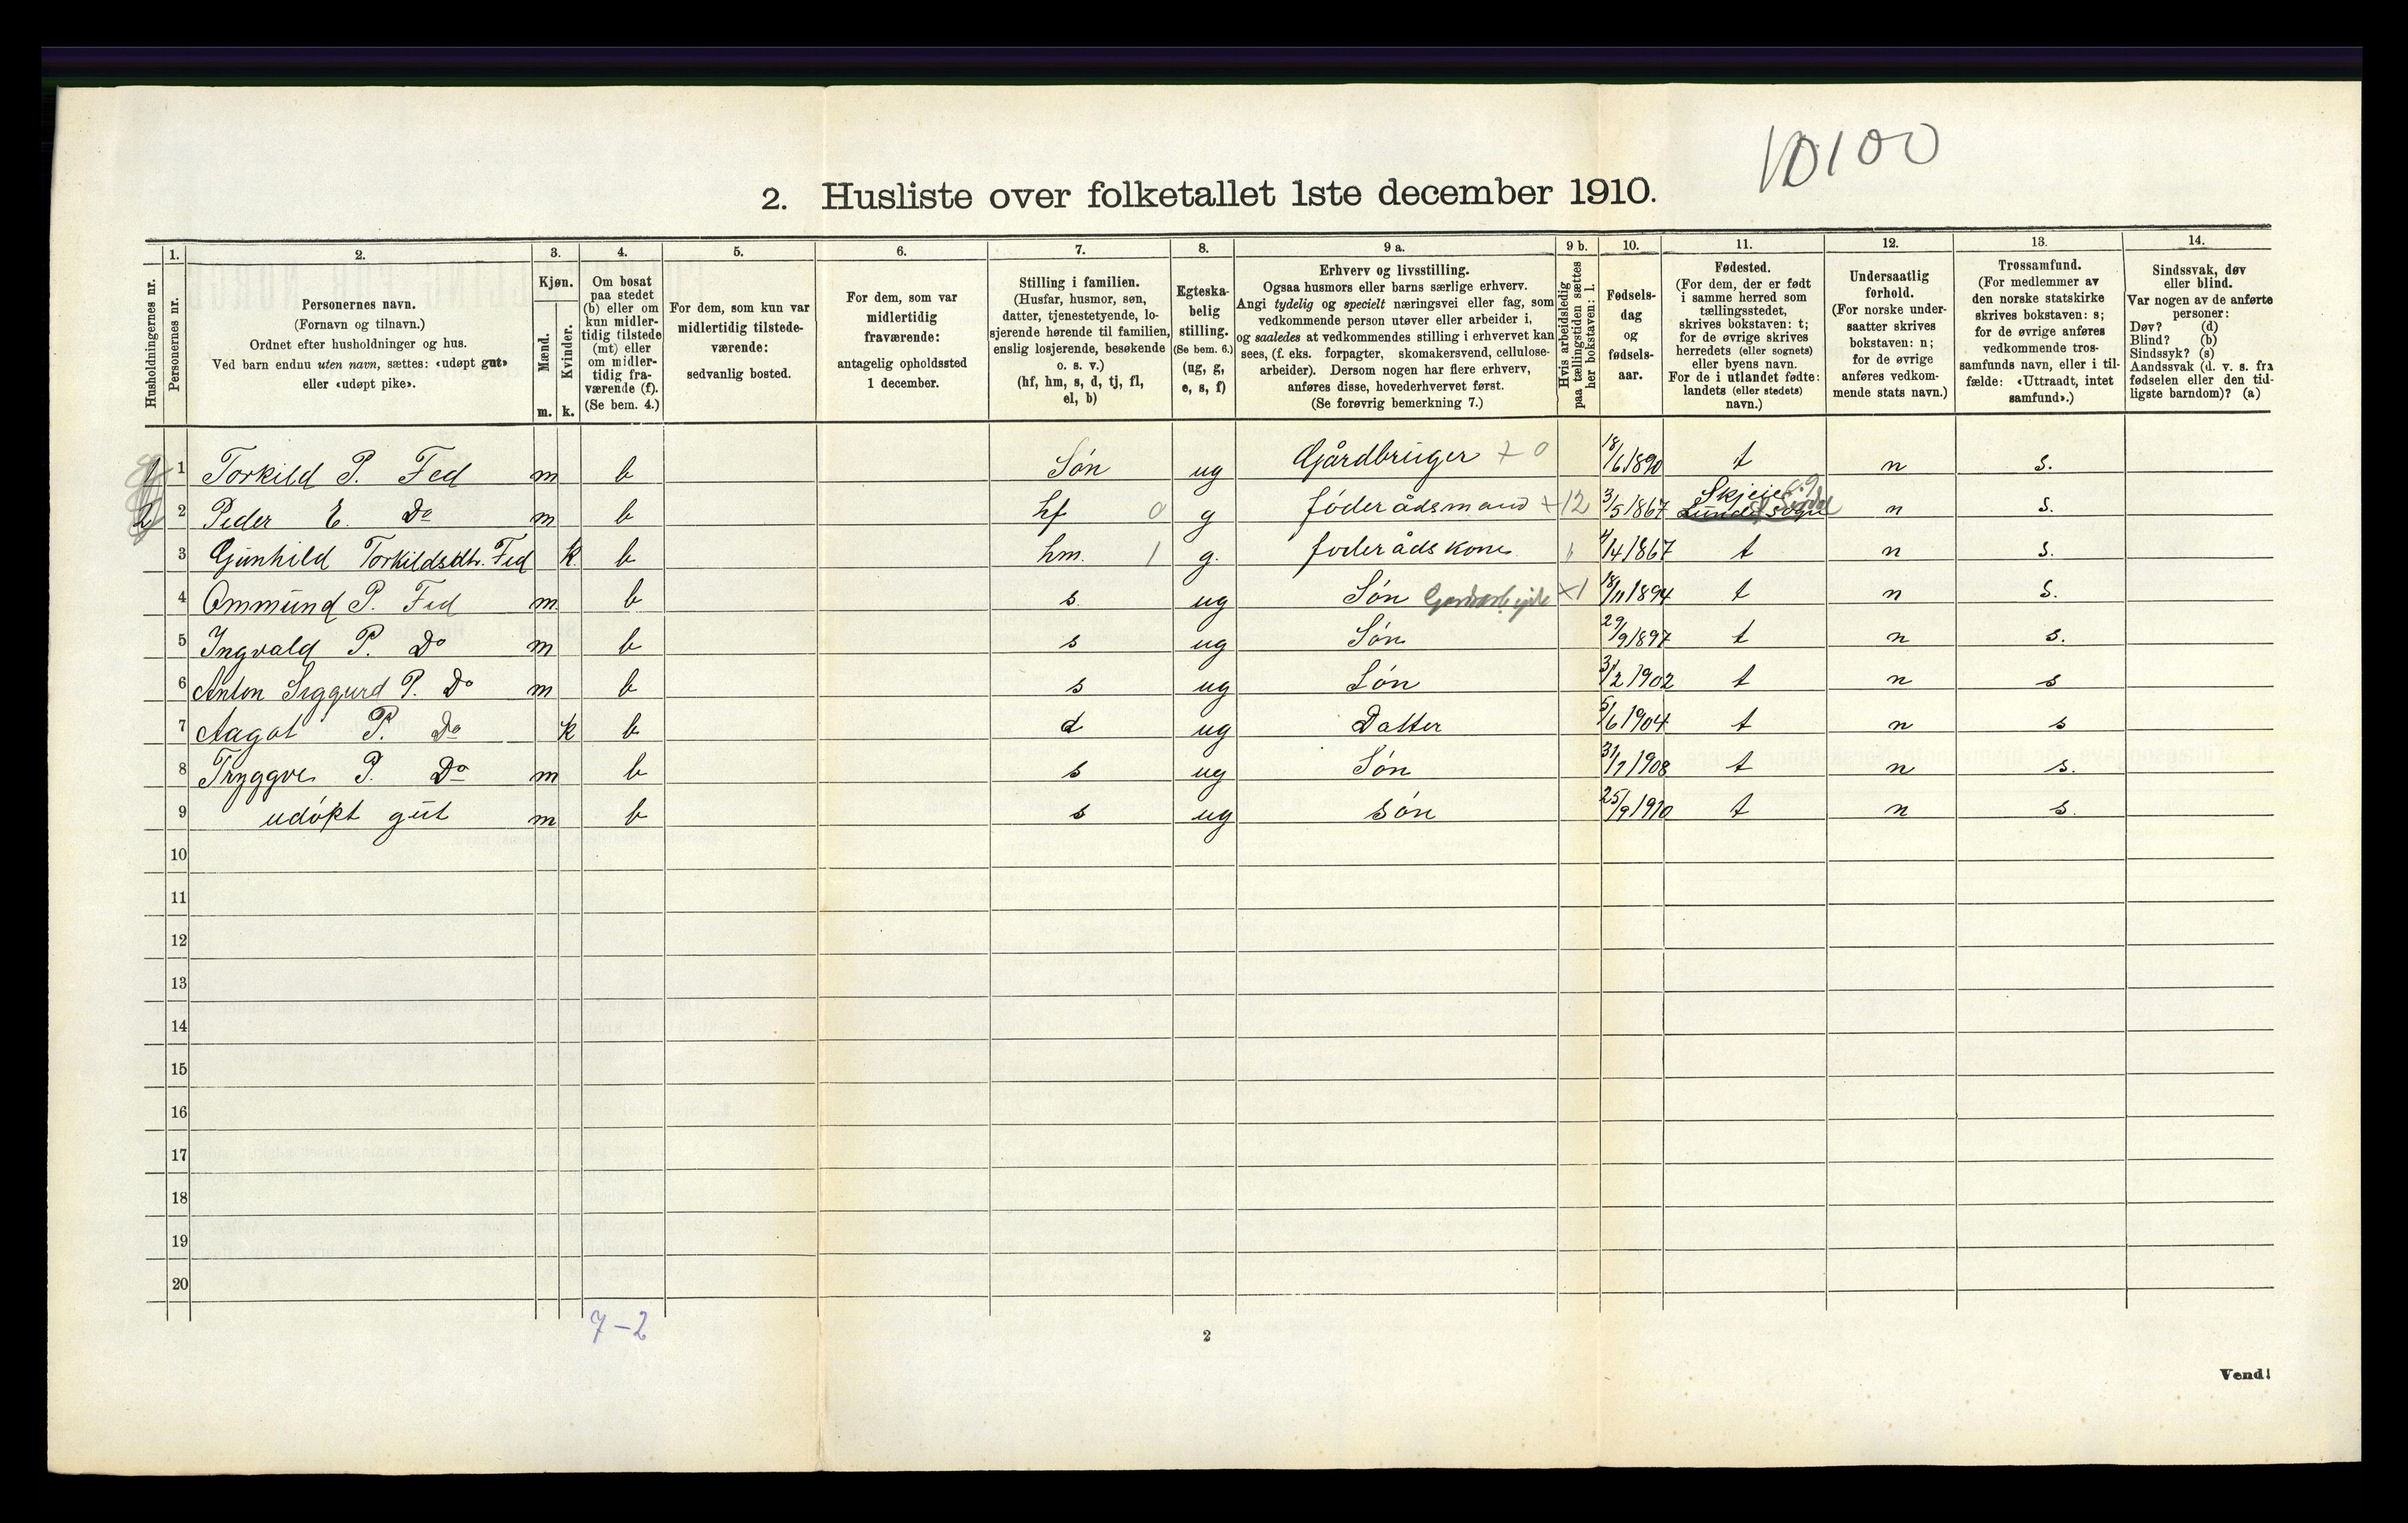 10100
2. Husliste over folketallet 1ste december 1910.
Husholdningernes nr.
1. Personernes nr.
2. Personernes navn. (Fornavn og tilnavn.) Ordnet efter husholdninger og hus. Ved barn endnu uten navn, sættes: «udøpt gut» eller «udøpt pike».
3. Kjøn. Mænd. m. Kvinder. k.
4. Om bosat paa stedet (b) eller om kun midlertidig tilstede (mt) eller om midlertidig fraværende (f). (Se bem. 4.)
5. For dem, som kun var midlertidig tilstedeværende: sedvanlig bosted.
6. For dem, som var midlertidig fraværende: antagelig opholdssted 1 december.
7. Stilling i familien. (Husfar, husmor, søn, datter, tjenestetyende, losjerende hørende til familien, enslig losjerende, besøkende o. s. v.) (hf, hm, s, d, tj, fl, el, b)
8. Egteskabelig stilling. (Se bem. 6.) (ug, g, e, s, f)
9 a. Erhverv og livsstilling. Ogsaa husmors eller barns særlige erhverv. Angi tydelig og specielt næringsvei eller fag, som vedkommende person utøver eller arbeider i, og saaledes at vedkommendes stilling i erhvervet kan sees, (f. eks. forpagter, skomakersvend, cellulosearbeider). Dersom nogen har flere erhverv, anføres disse, hovederhvervet først. (Se forøvrig bemerkning 7.)
9 b. Hvis arbeidsledig paa tællingstiden sættes her bokstaven: l.
10. Fødselsdag og fødselsaar.
11. Fødested. (For dem, der er født i samme herred som tællingsstedet, skrives bokstaven: t; for de øvrige skrives herredets (eller sognets) eller byens navn. For de i utlandet fødte: landets (eller stedets) navn.)
12. Undersaatlig forhold. (For norske undersaatter skrives bokstaven: n; for de øvrige anføres vedkommende stats navn.)
13. Trossamfund. (For medlemmer av den norske statskirke skrives bokstaven: s; for de øvrige anføres vedkommende trossamfunds navn, eller i tilfælde: «Uttraadt, intet samfund».)
14. Sindssvak, døv eller blind. Var nogen av de anførte personer: Døv? (d) Blind? (b) Sindssyk? (s) Aandssvak (d. v. s. fra fødselen eller den tidligste barndom)? (a)
1 1 Torkild P. Fed m b Søn ug Gårdbruger + 0 18/6 1890 t n s.
2 2 Peder E. Do m b hf 0 g føderådsmand + 12 3/5 1867 Skjeie Lunde sogn n s.
3 Gunhild Torkildsdtr. Fed k. b hm. 1 g. føderådskone 4/4 1867 t n s.
4 Ommund P. Fed m b s. ug Søn Gardsarbeide +1 18/11 1894 t n s.
5 Ingvald P. Do m b s ug Søn 29/9 1897 t n s.
6 Anton Siggurd P. Do m b s ug Søn /2 1902 t n s
7 Aagot P. Do k b d ug Datter 5/6 1904 t n s
8 Tryggve P. Do m b s ug Søn 31/1 1908 t n s.
9 udøpt gut m b s ug søn 25/9 1910 t n s.
10
11
12
13
14
15
16
17
18
19
20
7-2
2
Vend!